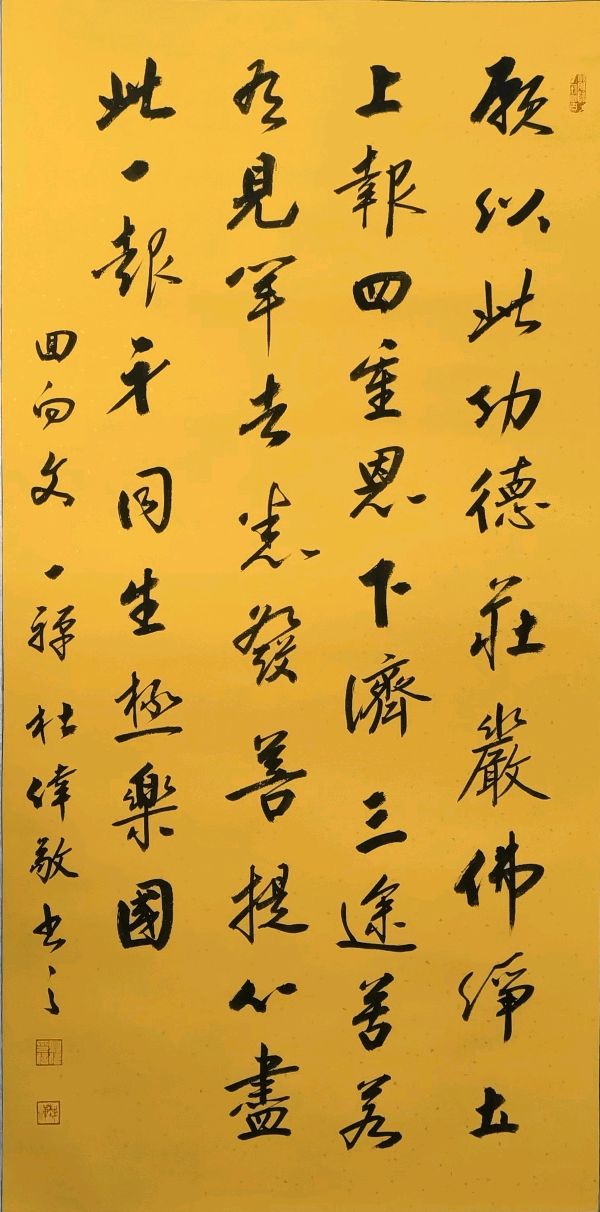 願以此功德莊嚴佛淨土
上報四重恩下濟三途苦若
有見聞者悉發菩提心盡
此一報身同生極樂國
回向文一禪杜偉敬書之